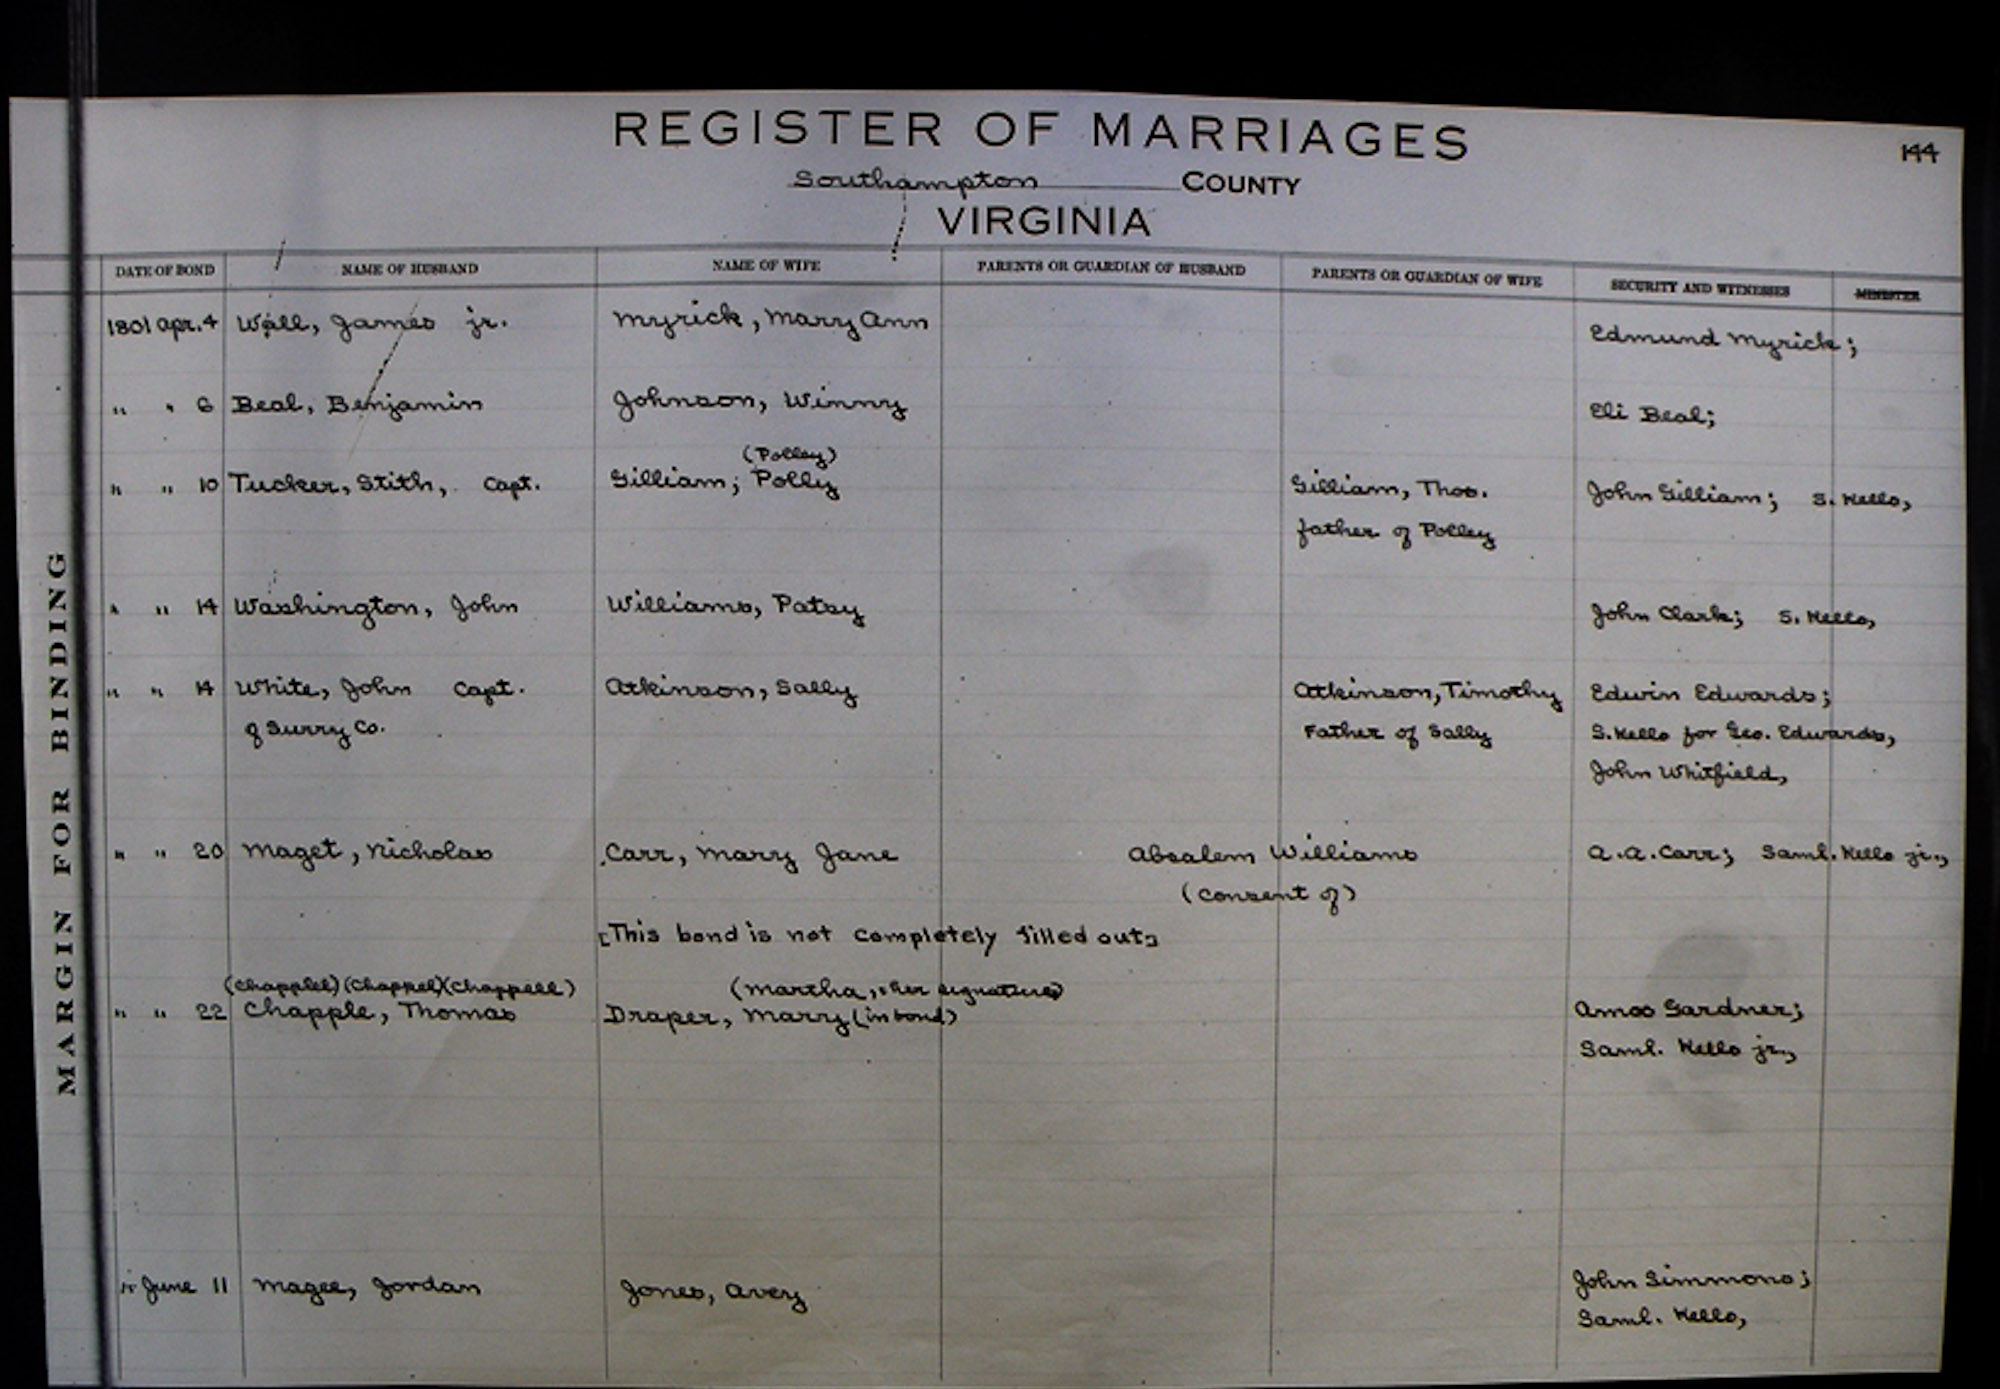 REGISTER OF MARRIAGES
144
Southampton COUNTY
VIRGINIA
MARGIN FOR BINDING
DATE OF BOND NAME OF HUSBAND NAME OF WIFE PARENTS OR GUARDIAN OF HUSBAND PARENTS OR GUARDIAN OF WIFE SECURITY AND WITNESSES MINISTER
1801 apr. 4 Wall, James jr. Myrick, Mary Ann Edmund Myrick;
" " 6 Beal, Benjamin Johnson, Winny Eli Beal;
(Polley)
" " 10 Tucker, Stith, Capt. Gilliam; Polly Gilliam, Thos. John Gilliam; S. Kello,
father of Polley
" " 14 Washington, John Williams, Patsy John Clark; S. Kello,
" " 14 White, John Capt. Atkinson, Sally Atkinson, Timothy Edwin Edwards;
of Surry Co. Father of Sally S. Kello for Geo. Edwards,
John Whitfield,
" " 20 Maget, Nicholas Carr, Mary Jane Absalem Williams A. A. Carr; Saml. Kello jr.,
(consent of)
[This bond is not completely filled out]
(Chapplel) (Chappel) (Chappell) (Martha, her signature)
" " 22 Chapple, Thomas Draper, Mary (in bond) Amos Gardner;
Saml. Kello jr.,
" June 11 Magee, Jordan Jones, Avery John Simmons;
Saml. Kello,